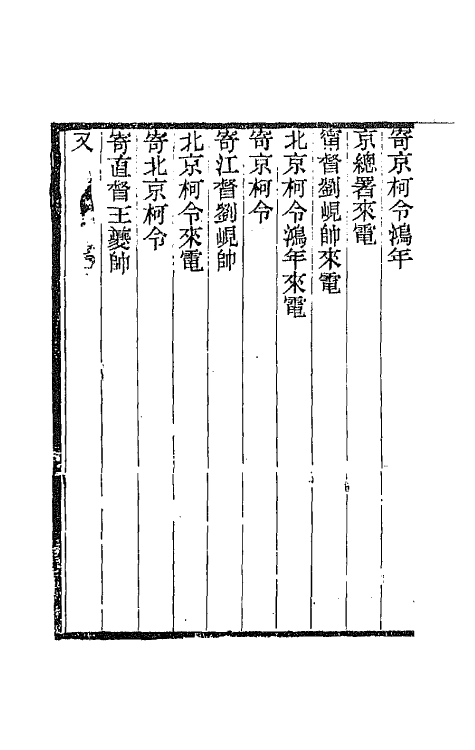 寄京柯令鴻年
京總署來電
甯督劉峴帥來電
北京柯令鴻年來電
寄京柯令
寄江督劉峴帥
北京柯令來電
寄北京柯令
寄直督王夔帥
又